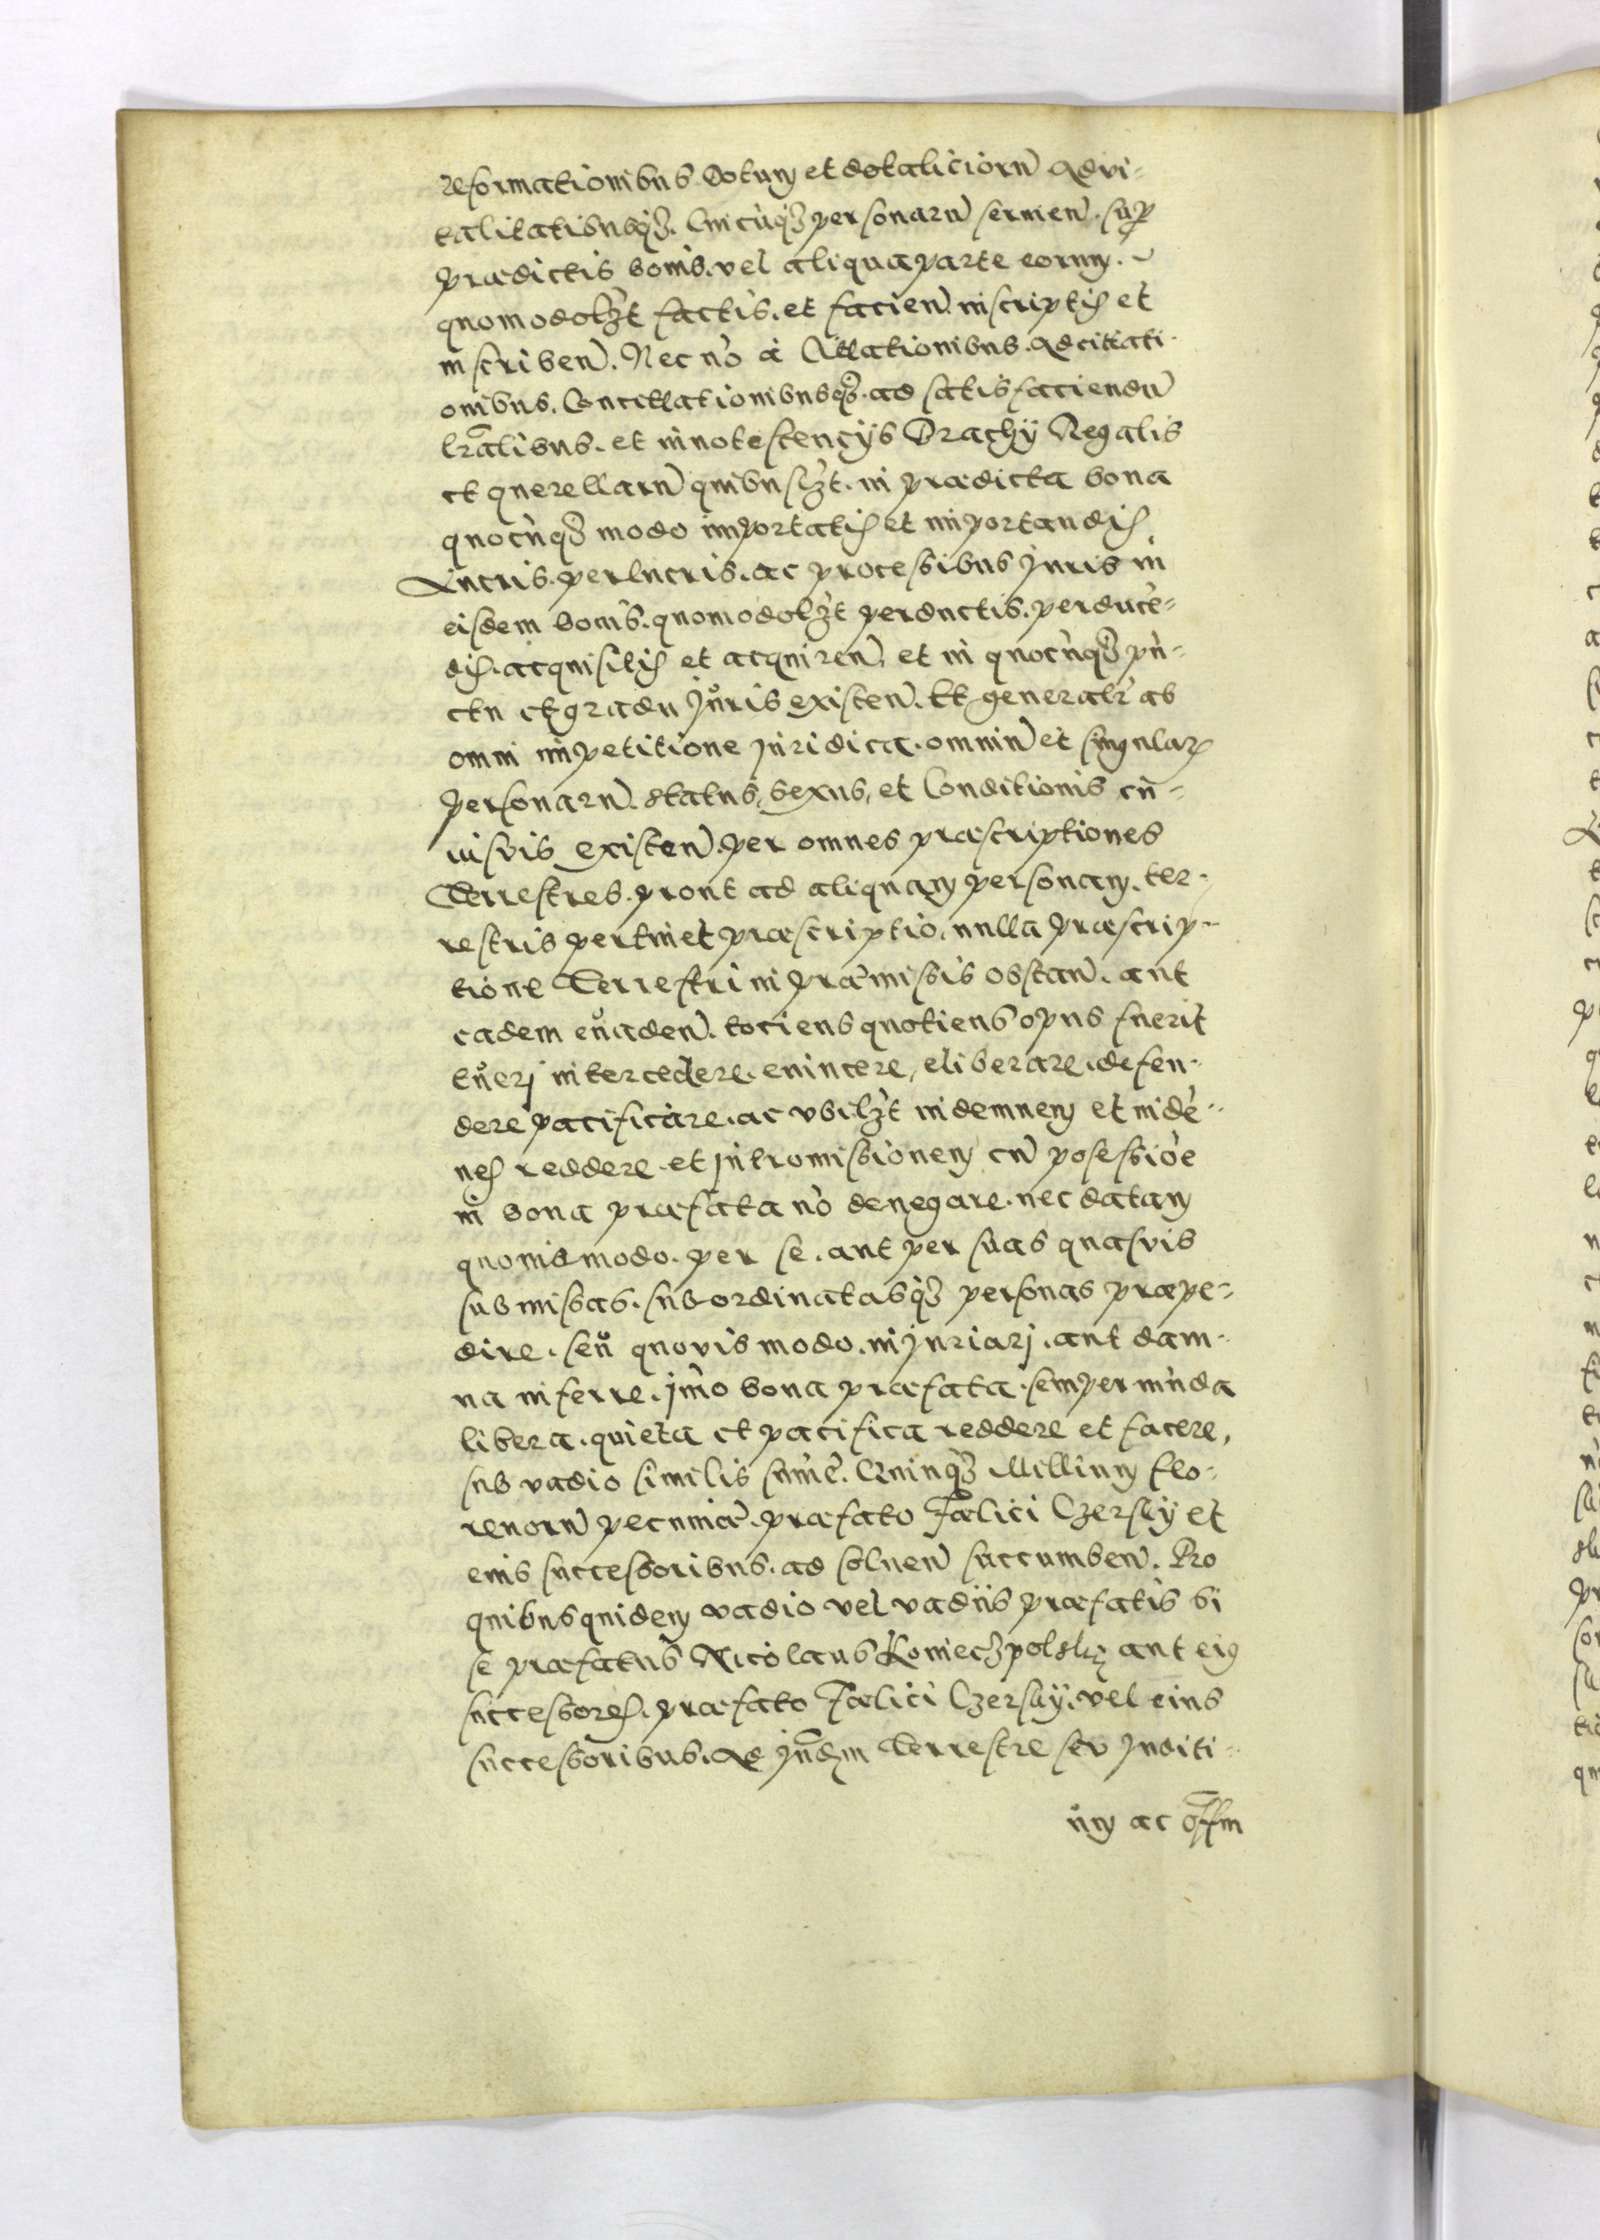 reformationibus Dotum et dotaliciorũ Advi-
talitatibusqз. Cuicũqз personarũ servieñ. sup
prædictis bonis. vel aliqua parte eorum.
quomodolзt factis. et facieñ. inscriptis et
inscribeñ. Nec nõ à Citationibus. Adcitati-
onibus. Concitationibusqз. ad satisfaciendũ
lr̃alibus. et innotescencÿs Brachÿ Regalis
et querellarũ quibusl̃зt. in prædicta bona
quocũqз modo importatis et importandis
Lucris. perlucris. ac processibus Juris in
eisdem bonis. quomodolзt perductis. perducẽ-
dis. acquisitis et acquireñ, et in quocũqз pũ-
ctu et gradu Juris existeñ. Et generalr̃ ab
omni impetitione Juridica. omniũ et singular
personarũ. status, sexus, et Conditionis cu-
iusvis existeñ. per omnes præscriptiones
Terrestres. prout ad aliquam personam. ter-
restris pertinet præscriptio, nulla præscrip-
tione Terrestri in præmissis obstañ. aut
eadem evadeñ. tociens quotiens opus fuerit
tueri intercedere. evincere, eliberare. defen-
dere pacificare. ac ubilзt indemnem et indẽ-
nes reddere. et Intromissionem cũ posessiõe
in bona præfata nõ denegare. nec datam
quovismodo. per se. aut per suas quasvis
submissas. subordinatasqз personas præpe-
dire. seu quovis modo. injuriari. aut dam-
na inferre. imo bona præfata. semper munda
libera. quieta et pacifica reddere et facere,
sub vadio similis sum̃e. Quinqз Millium flo-
renorũ pecuniæ. præfato Fælici Czerskÿ et
eius successoribus. ad solueñ succumbeñ. Pro
quibusquidem vadio vel vadiis præfatis si
se præfatus Nicolaus Koniecзpolskÿ aut eius
successores. præfato Fælici Czerskÿ. vel eius
successoribus. Ad Jud̃m Terrestre seu Juditi-
um ac off̃m